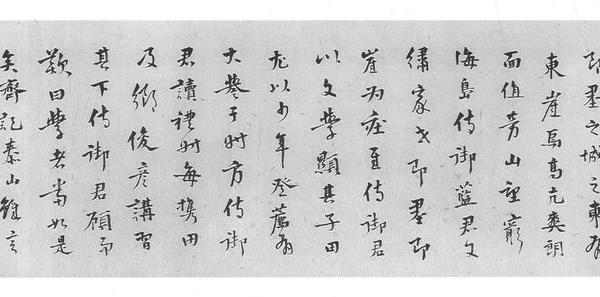 即墨之城之東有
東崖焉高亢爽朗
面值勞山望窮
海島侍御藍君文
繡家世即墨即
崖為庄至侍御君
以文學顯其子田
尤以少年登薦有
大譽于時方侍御
君讀禮時每攜田
及鄉俊彥講習
其下侍御君顧而
歎曰學者當如是
矣齊記泰山雖言